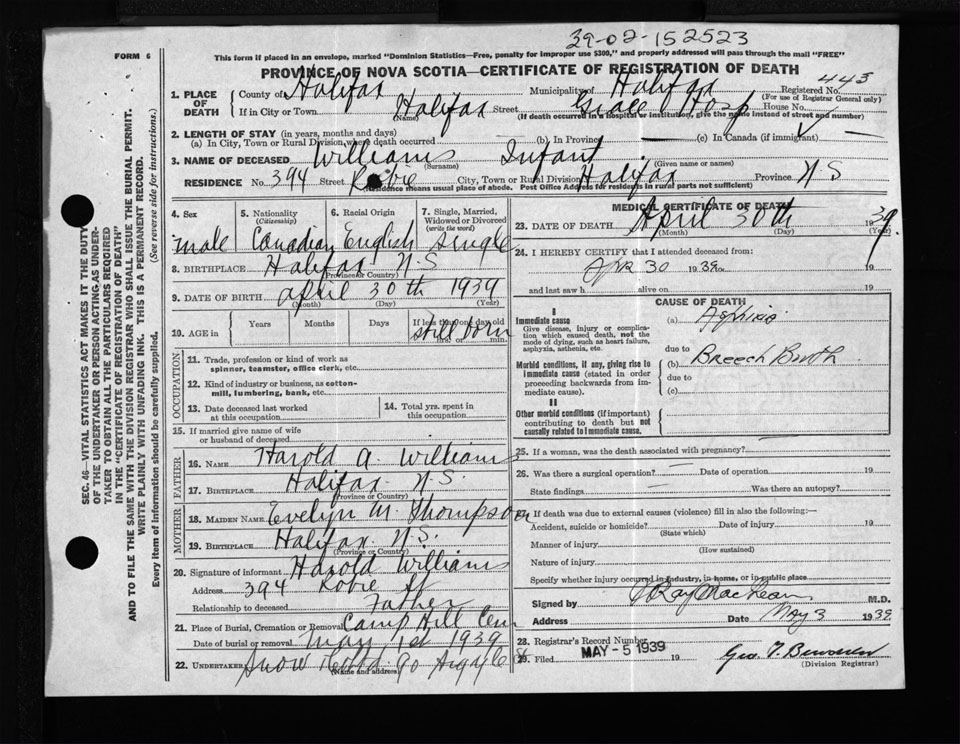 39-02-152523
FORM 6
This form if placed in an envelope, marked "Dominion Statistics—Free, penalty for improper use $300," and properly addressed will pass through the mail "FREE"
PROVINCE OF NOVA SCOTIA—CERTIFICATE OF REGISTRATION OF DEATH
1. PLACE OF DEATH County of Halifax Municipality of Halifax Registered No. 443
(For use of Registrar General only)
If in City or Town Halifax Street Grace Hosp House No.
(Name) (If death occurred in a hospital or institution, give the name instead of street and number)
2. LENGTH OF STAY (in years, months and days)
(a) In City, Town or Rural Division where death occurred (b) In Province — (c) In Canada (if immigrant) —
3. NAME OF DECEASED Williams Infant
(Surname) (Given name or names)
RESIDENCE No. 394 Street Robie City, Town or Rural Division Halifax Province N S
(Residence means usual place of abode. Post Office Address for residents in rural parts not sufficient)
4. Sex male
5. Nationality (Citizenship) Canadian
6. Racial Origin English
7. Single, Married, Widowed or Divorced (write the word) Single
8. BIRTHPLACE Halifax N S
(Province or Country)
9. DATE OF BIRTH April 30th 1939
(Month) (Day) (Year)
10. AGE in Years Months Days If less than one day old still born
hrs. or min.
OCCUPATION
11. Trade, profession or kind of work as spinner, teamster, office clerk, etc.
12. Kind of industry or business, as cotton-mill, lumbering, bank, etc.
13. Date deceased last worked at this occupation
14. Total yrs. spent in this occupation
15. If married give name of wife or husband of deceased
FATHER
16. NAME Harold A. Williams
17. BIRTHPLACE Halifax N. S.
(Province or Country)
MOTHER
18. MAIDEN NAME Evelyn M. Thompson
19. BIRTHPLACE Halifax N. S.
(Province or Country)
20. Signature of informant Harold Williams
Address 394 Robie St
Relationship to deceased Father
21. Place of Burial, Cremation or Removal Camp Hill Cem
Date of burial or removal May 1st 1939
22. UNDERTAKER Snow 90 Argyle St
(Name and address)
MEDICAL CERTIFICATE OF DEATH
23. DATE OF DEATH April 30th 1939.
(Month) (Day)
24. I HEREBY CERTIFY that I attended deceased from
Apr 30 1939 to 19
and last saw h alive on 19
CAUSE OF DEATH
I
Immediate cause
Give disease, injury or complication which caused death, not the mode of dying, such as heart failure, asphyxia, asthenia, etc.
(a)
due to
Morbid conditions, if any, giving rise to immediate cause (stated in order proceeding backwards from immediate cause).
(b) Breech Birth
due to
(c)
II
Other morbid conditions (if important) contributing to death but not causally related to immediate cause.
25. If a woman, was the death associated with pregnancy?
26. Was there a surgical operation? — Date of operation 19
State findings Was there an autopsy?
27. If death was due to external causes (violence) fill in also the following:—
Accident, suicide or homicide? Date of injury 19
(State which)
Manner of injury
(How sustained)
Nature of injury
Specify whether injury occurred in industry, in home, or in public place
Signed by J Ray MacLean M.D.
Address Date May 3 1939
28. Registrar's Record Number
29. Filed MAY - 5 1939 19
(Division Registrar)
SEC. 46—VITAL STATISTICS ACT MAKES IT THE DUTY
OF THE UNDERTAKER OR PERSON ACTING AS UNDER-
TAKER TO OBTAIN ALL THE PARTICULARS REQUIRED
IN THE "CERTIFICATE OF REGISTRATION OF DEATH"
AND TO FILE THE SAME WITH THE DIVISION REGISTRAR WHO SHALL ISSUE THE BURIAL PERMIT.
WRITE PLAINLY WITH UNFADING INK. THIS IS A PERMANENT RECORD.
Every item of information should be carefully supplied. (See reverse side for instructions.)